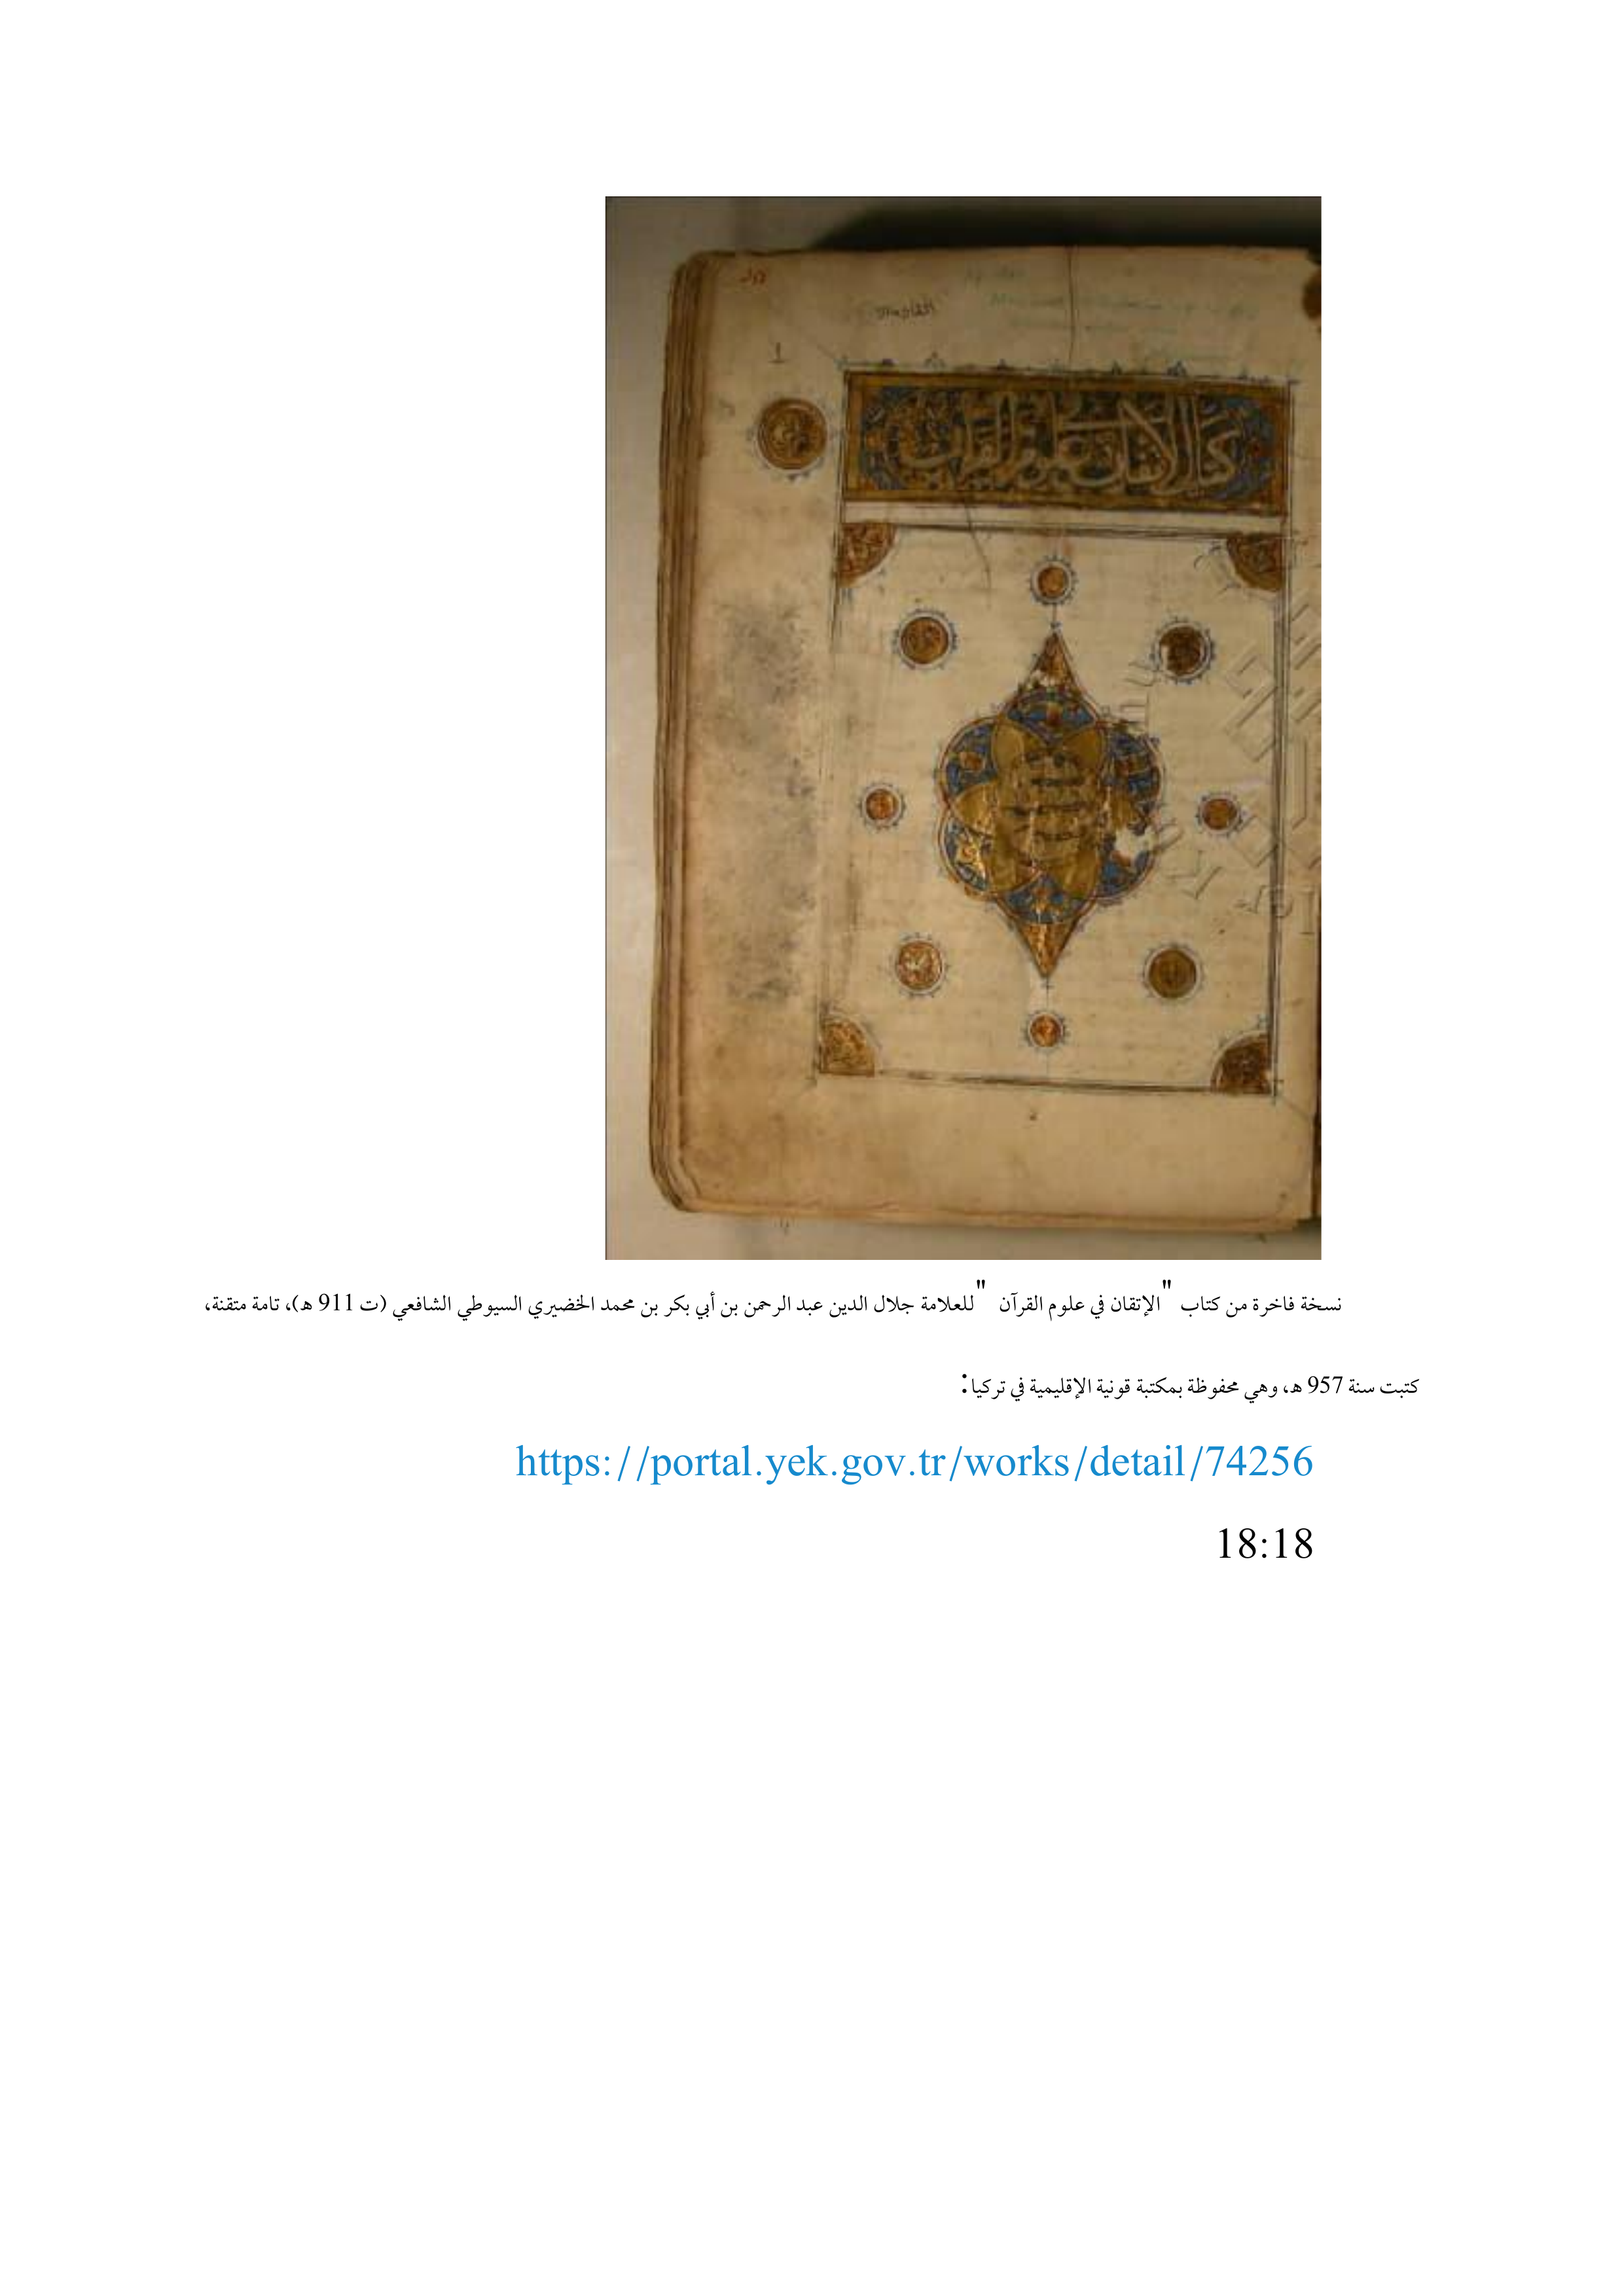 كتاب الإتقان في علوم القرآن
نسخة فاخرة من كتاب "الإتقان في علوم القرآن" للعلامة جلال الدين عبد الرحمن بن أبي بكر بن محمد الخضيري السيوطي الشافعي (ت 911 هـ)، تامة متقنة،
كتبت سنة 957 هـ، وهي محفوظة بمكتبة قونية الإقليمية في تركيا:
https://portal.yek.gov.tr/works/detail/74256
18:18